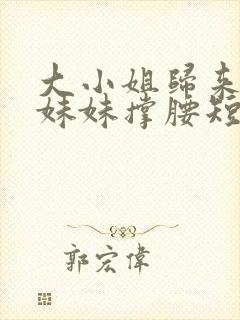 大小姐歸来
妹妹撑腰短
郭宏偉